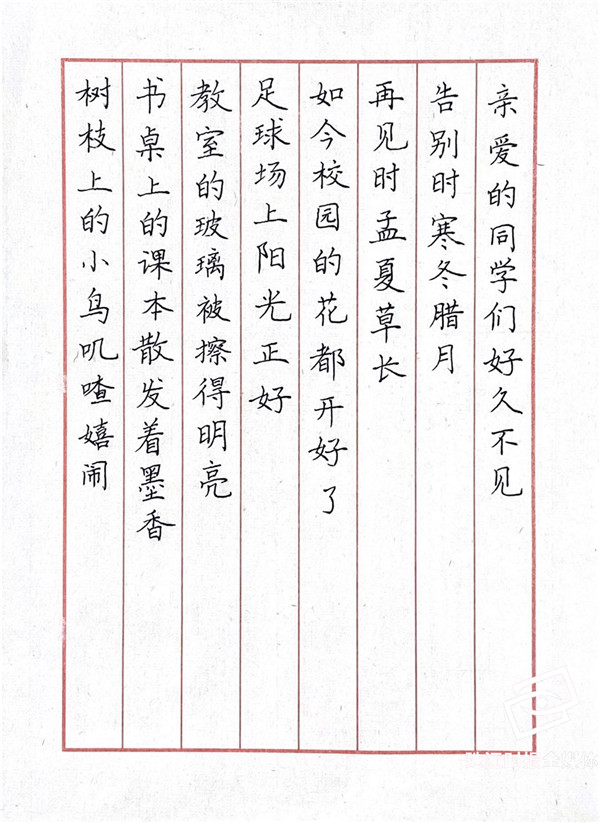 亲爱的同学们好久不见
告别时寒冬腊月
再见时孟夏草长
如今校园的花都开好了
足球场上阳光正好
教室的玻璃被擦得明亮
书桌上的课本散发着墨香
树枝上的小鸟叽喳嬉闹